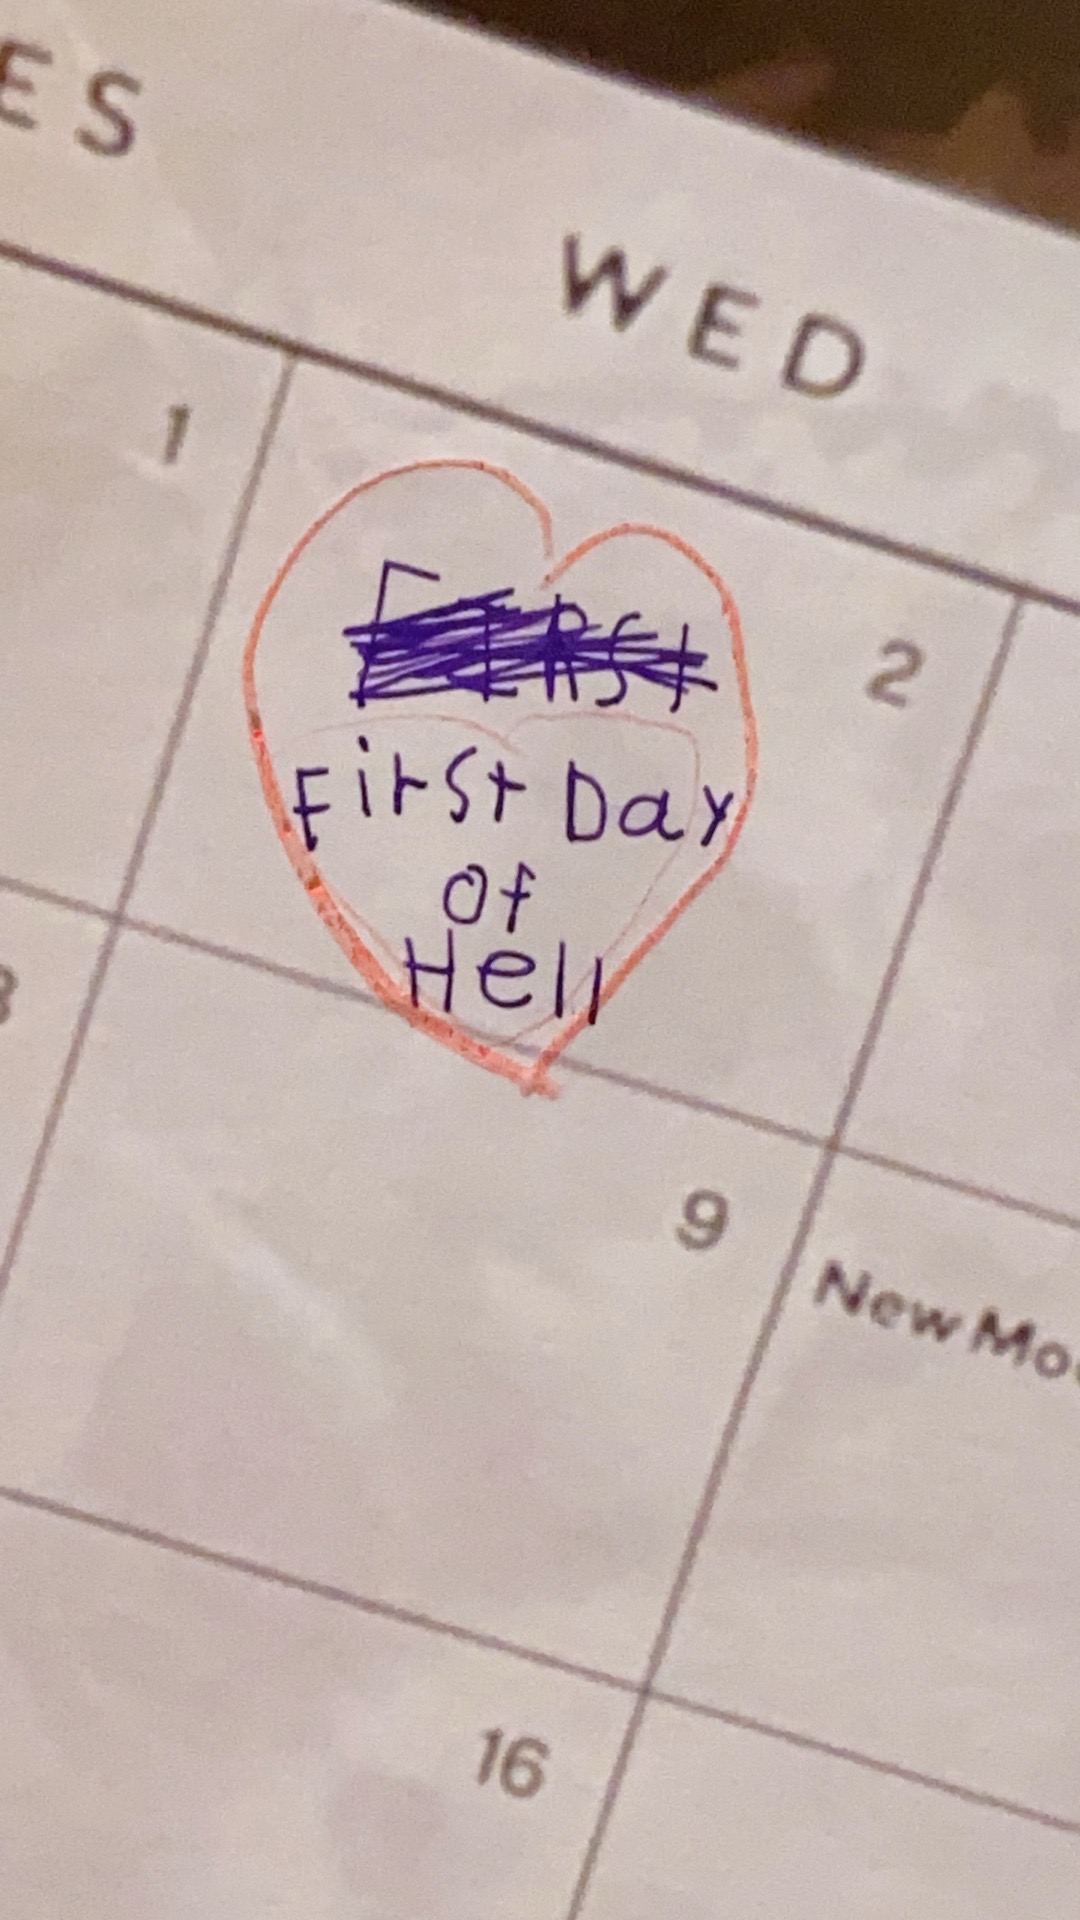 ES WED
1 2
First
First Day
Of
Hell
9
New Mo
16